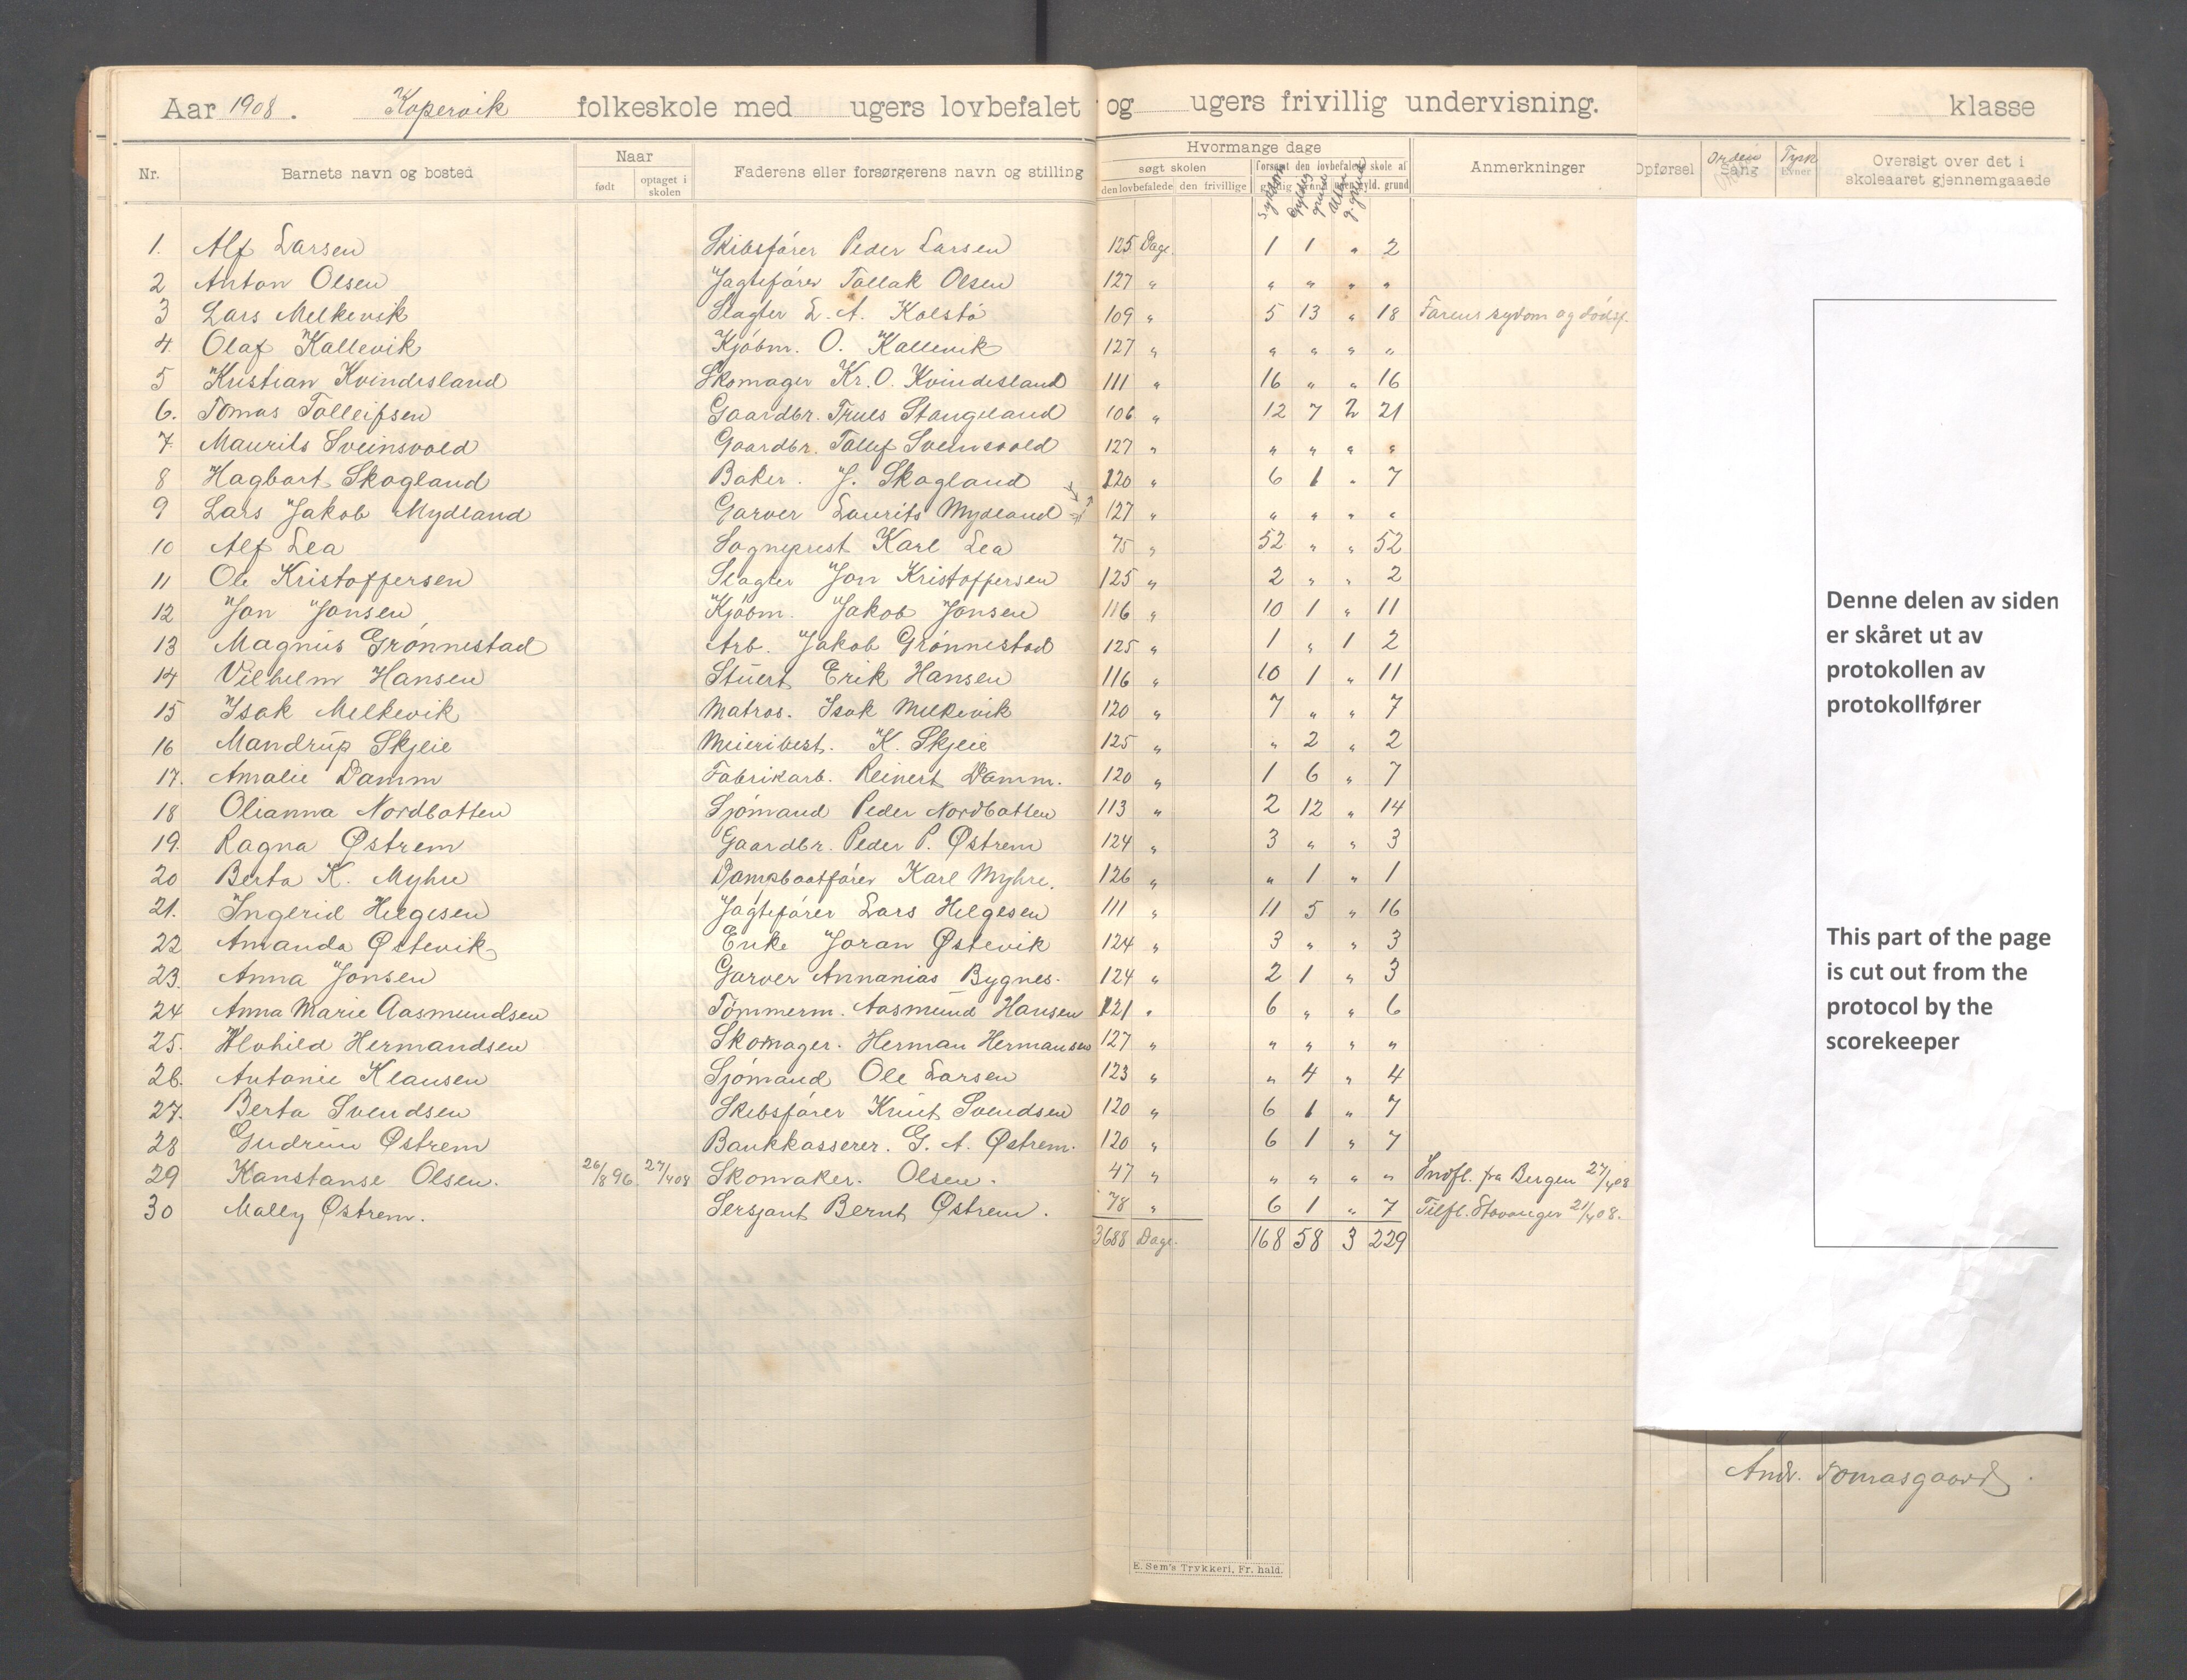 Aar 1908. Kopervik folkeskole med ugers lovbefalet og ugers frivillig undervisning. klasse
Nr. Barnets navn og bosted Naar født optaget i skolen Faderens eller forsørgerens navn og stilling Hvormange dage søgt skolen den lovbefalede den frivillige forsømt den lovbefalede skole af gyldig grund ugyld. grund Anmerkninger Opførsel Orden Sang Tysk Evner Oversigt over det i skoleaaret gjennemgaaede
Sygdom Gyldig grund Uden g. grund
1. Alf Larsen Skibsfører Peder Larsen 125 Dage 1 1 " 2
2 Anton Olsen Jagtefører Tollak Olsen 127 " " " " "
3 Lars Melkevik Slagter L. A. Kolstø 109 " 5 13 " 18 Farens sydom og dødsf.
4. Olaf Kallevik Kjøbm. O. Kallevik 127 " " " " "
5 Kristian Kvindesland Skomager Kr. O. Kvindesland 111 " 16 " " 16
6. Tomas Tolleifsen Gaardbr. Truls Stangeland 106 " 12 7 2 21
7. Maurits Sveinsvold Gaardbr. Tollef Sveinsvold 127 " " " " "
8 Hagbart Skogland Baker. J. Skogland 120 " 6 1 " 7
9 Lars Jakob Mydland Garver Laurits Mydland 127 " " " " "
10 Alf Lea Sogneprest Karl Lea 75 " 52 " " 52
11 Ole Kristoffersen Slagter Jon Kristoffersen 125 " 2 " " 2
12 Jon Jonsen Kjøbm. Jakob Jonsen 116 " 10 1 " 11
13 Magnus Grønnestad Arb. Jakob Grønnestad 125 " 1 " 1 2
14 Vilhelm Hansen Stuert Erik Hansen 116 " 10 1 " 11
15 Isak Melkevik Matros. Isak Melkevik 120 " 7 " " 7
16 Mandrup Skjeie Meieribest. K. Skjeie 125 " " 2 " 2
17. Amalie Damm Fabrikarb. Reinert Damm. 120 " 1 6 " 7
18 Olianna Nordbotten Sjømand Peder Nordbotten 113 " 2 12 " 14
19. Ragna Østrem Gaardbr. Peder P. Østrem 124 " 3 " " 3
20 Berta K. Myhre Dampbaatfører Karl Myhre. 126 " " 1 " 1
21. Ingerid Helgesen Jagtefører Lars Helgesen 111 " 11 5 " 16
22 Amanda Østevik Enke Joran Østevik 124 " 3 " " 3
23. Anna Jonsen Garver Annanias Bygnes. 124 " 2 1 " 3
24 Anna Marie Aasmundsen Tømmerm. Aasmund Hansen 121 " 6 " " 6
25. Alvhild Hermandsen Skomager. Herman Hermansen 127 " " " " "
26. Antonie Klausen Sjømand Ole Larsen 123 " " 4 " 4
27. Berta Svendsen Skibsfører Knut Svendsen 120 " 6 1 " 7
28 Gudrun Østrem Bankkasserer. G. A. Østrem. 120 " 6 1 " 7
29 Konstanse Olsen. 26/8 96. 27/4 08 Skomaker. Olsen. 47 " " " " " Indfl. fra Bergen 27/4 08
30 Mally Østrem. Sersjant Bernt Østrem. 78 " 6 1 " 7 Tilfl. Stavanger 21/4 08.
3688 Dage. 168 58 3 229
Denne delen av siden
er skåret ut av
protokollen av
protokollfører
This part of the page
is cut out from the
protocol by the
scorekeeper
Andr. Tomasgaard.
E. Sem's Trykkeri, Fr. hald.